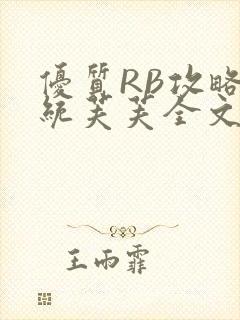 優質RB攻略
統芙芙全文
王雨霏